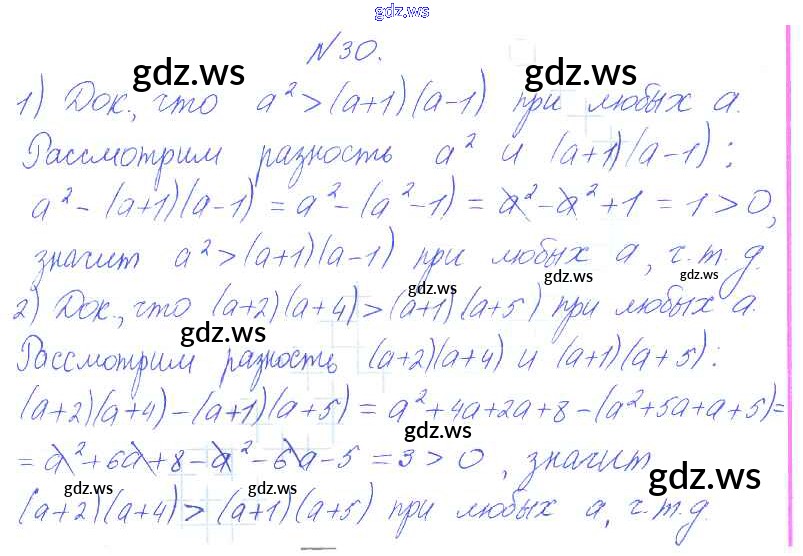 gdz.ws
№30.
gdz.ws gdz.ws
1) Док., что a² > (a+1)(a-1) при любых a.
Рассмотрим разность a² и (a+1)(a-1):
a² - (a+1)(a-1) = a² - (a² - 1) = a² - a² + 1 = 1 > 0,
значит a² > (a+1)(a-1) при любых a, ч.т.д.
gdz.ws gdz.ws gdz.ws
2) Док., что (a+2)(a+4) > (a+1)(a+5) при любых a.
gdz.ws
Рассмотрим разность (a+2)(a+4) и (a+1)(a+5):
(a+2)(a+4) - (a+1)(a+5) = a² + 4a + 2a + 8 - (a² + 5a + a + 5) =
gdz.ws
= a² + 6a + 8 - a² - 6a - 5 = 3 > 0, значит
gdz.ws gdz.ws gdz.ws
(a+2)(a+4) > (a+1)(a+5) при любых a, ч.т.д.